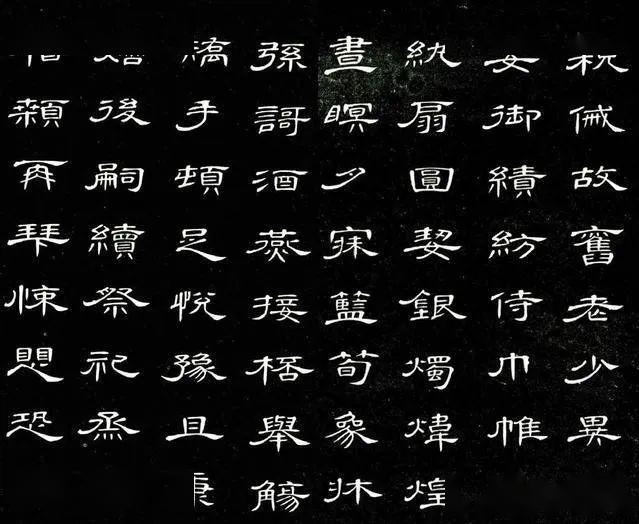 故舊老少異
御績紡侍巾帷
紈扇圓絜銀燭煒煌
晝瞑夕寐籃筍象牀
謌酒燕接桮舉觴
手頓足悅豫且康
後嗣續祭祀烝
顙再拜悚恐